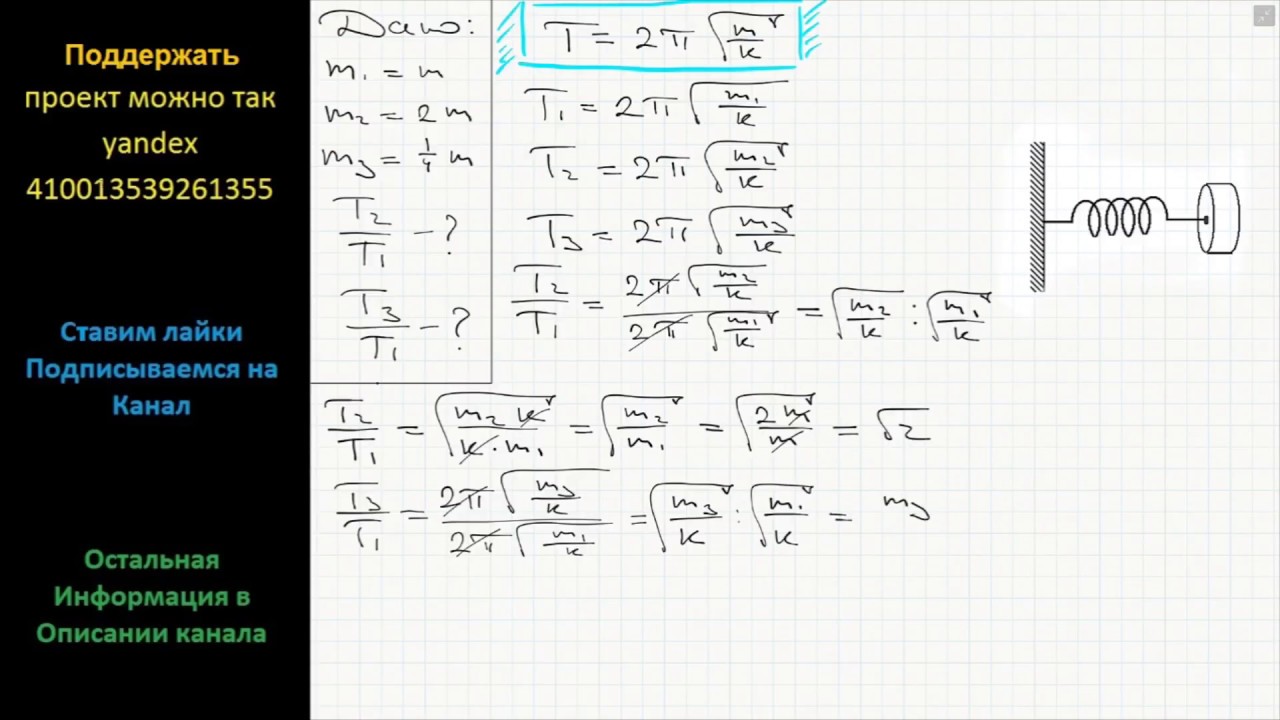 Поддержать
проект можно так
yandex
410013539261355
Ставим лайки
Подписываемся на
Канал
Остальная
Информация в
Описании канала
Дано:
m₁ = m
m₂ = 2m
m₃ = 1/4 m
T₂/T₁ - ?
T₃/T₁ - ?
T = 2π √(m/k)
T₁ = 2π √(m₁/k)
T₂ = 2π √(m₂/k)
T₃ = 2π √(m₃/k)
T₂/T₁ = (2π √(m₂/k))/(2π √(m₁/k)) = √(m₂/k) : √(m₁/k)
T₂/T₁ = √((m₂ k)/(k · m₁)) = √(m₂/m₁) = √(2m/m) = √2
T₃/T₁ = (2π √(m₃/k))/(2π √(m₁/k)) = √(m₃/k) : √(m₁/k) = m₃